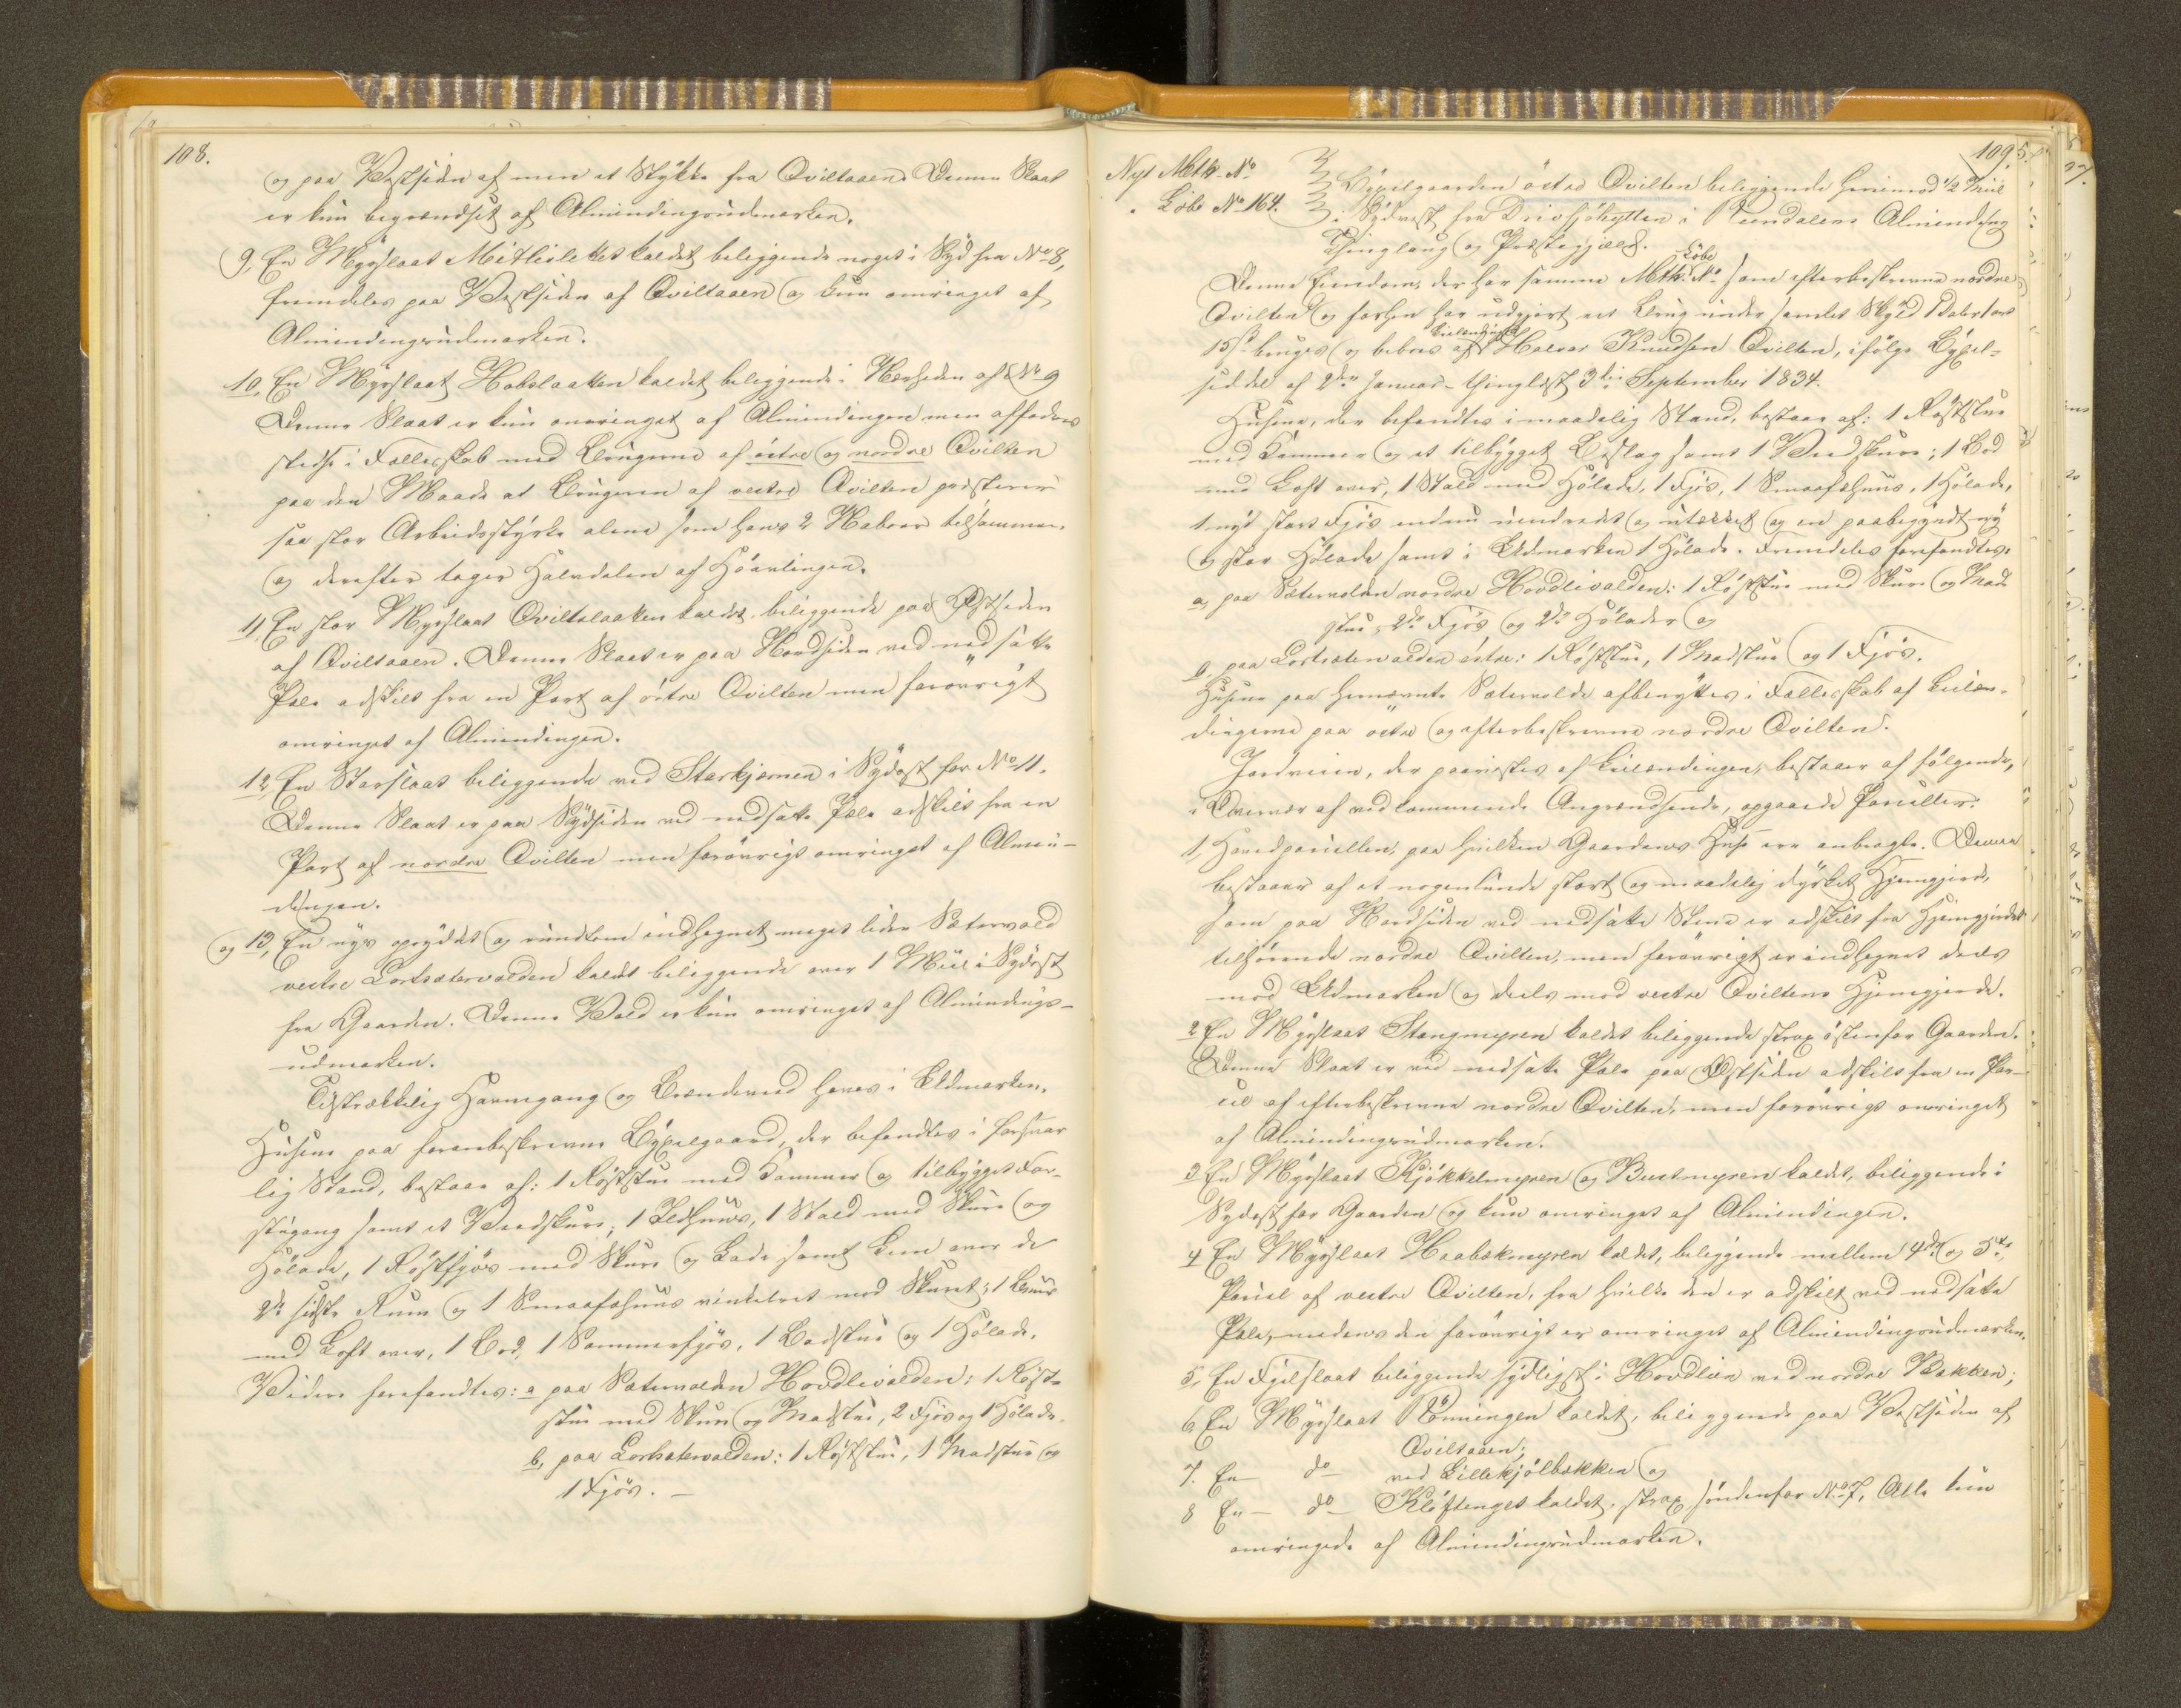 108.
og paa Vestsiden af men et Stykke fra Qviltaaen. Denne Slaat
er kun begrændset af Almindingsudmarken.
9, En Myrslaat Mitlisletket kaldet beliggende noget i Syd fra No 8,
fremdeles paa Vestsiden af Qviltaaen og kun omringet af
Almindingsudmarken.
10, En Myrslaat Hobslaatten kaldet beliggende i Nærheden af No 9
Denne Slaat er kun omringet af Almindingen men affodres
stedse i Fællesskab med Brugerne af östre og nordre Qvilten
paa den Maade at Brugeren af vestre Qvilten præsterer
saa stor Arbeidsstyrke alene som hans 2 Naboer tilsammen,
og derefter tager Halvdelen af Höavlingen.
11, En stor Myrslaat Qviltslaatten kaldet, beliggende paa Östsiden
af Qviltaaen. Denne Slaat er paa Nordsiden ved nedsatte
Pæle adskilt fra en Part af östre Qvilten men forövrigt
omringet af Almindingen.
12, En Starslaat beliggende ved Starkjærnen i Sydost for No 11.
Denne Slaat er paa Sydsiden ved nedsatte Pæle adskilt fra en
Part af nordre Qvilten men forövrigt omringet af Almin-
dingen.
og 13, En nys opryddet og rundtom indhegnet meget liden Sætervold
vestre Lortsætervolden kaldet beliggende over 1 Miil i Sydost
fra Gaarden. Denne Vold er kun omringet af Almindings-
udmarken.
Tilstrækkelig Havnegang og Brændeved haves i Udmarken.
Husene paa foranbeskrevne Bÿxelgaard, der befandtes i forsvar
lig Stand, bestaar af: 1 Röststue med Kammer og tilbygget For-
stugang samt et Veedskure; 1 Ildhuus, 1 Stald med Skure og
Hölade, 1 Röstfjös med Skure og Lade samt Lem over de
2de sidste Rum og 1 Smaafæhuus vinkelret mod Skuret; 1 Buur
med Loft over, 1 Bod, 1 Sommerfjös, 1 Badstue og 1 Hölade.
Videre forefandtes: a paa Sætervolden Hovdlivolden: 1 Röst-
stue med Skure og Madstue, 2 Fjös og 1 Hölade.
b, paa Lortsætervolden: 1 Röststue, 1 Madstue og
1 Fjös. –
109.
Nyt Mtk. No
" Löbe No 164.
Bÿxelgaarden östre Qvilten beliggende henimod 1/2 Miil
i Sydvest fra Drivsjöhytten i Rendalens Alminding
Thinglaug og Præstegjæld.
Löbe
Denne Eiendom, der har samme Mtk. No som efterbeskrevne nordre
Qvilten og forhen har udgjort eet Brug under samlet Skyld 1 Daler 1 ort
Leilændingen
15 s bruges og beboes af Halvor Knudsen Qvilten, ifölge Bÿxel-
seddel af 2den Januar – thinglæst 3die September 1834.
Husene, der befandtes i maadelig Stand, bestaar af: 1 Röststue
med Kammer og et tilbygget Beslag samt 1 Veedskure; 1 Bod
med Loft over, 1 Stald med Hölade, 1 Fjös, 1 Smaafæhuus, 1 Hölade,
1 nyt stort Fjös endnu uindredet og utækket og en paabegyndt ny
og stor Hölade samt i Udmarken 1 Hölade. Fremdeles forefandtes:
a, paa Sætervolden nordre Hovdlivolden: 1 Röststue med Skure og Mad-
stue, 2de Fjös og 2de Hölader og
b, paa Lortsætervolden östre: 1 Röststue, 1 Madstue og 1 Fjös.
Husene paa hernævnte Sætervolde afbenyttes i Fællesskab af Leilæn-
dingerne paa östre og efterbeskrevne nordre Qvilten.
Jordveien, der paavistes af Leilændingen, bestaaer af fölgende,
i Overvær af vedkommende Angrændsende, opgaaede Parceller:
1, Hovedparcellen, paa hvilken Gaardens Huse ere anbragte. Denne
bestaaer af et nogenlunde stort og maadelig dyrket Hjemgjerde,
som paa Nordsiden ved nedsatte Stene er adskilt fra Hjemgjerdet
tilhörende nordre Qvilten, men forövrigt er indhegnet deels
mod Udmarken og deels mod vestre Qviltens Hjemgjerde.
2 En Myrslaat Stangmyren kaldet beliggende strax östenfor Gaarden.
Denne Slaat er ved nedsatte Pæle paa Östsiden adskilt fra en Par-
cel af efterbeskrevne nordre Qvilten, men forövrigt omringet
af Almindingsudmarken.
3 En Myrslaat Kjökkelmyren og Buetmyren kaldet, beliggende i
Sydost for Gaarden og kun omringet af Almindingen.
4 En Myrslaat Haabækmyren kaldet, beliggende mellem 4de og 5te
Parcel af vestre Qvilten, fra hvilke den er adskilt ved nedsatte
Pæle, medens den forövrigt er omringet af Almindingsudmarken.
5, En Fjelslaat beliggende sydligst i Hovdlien ved nordre Bækken;
6 En Myrslaat Rönningen kaldet, beliggende paa Vestsiden af
Qviltaaen;
7. En – do – ved Lillekjölbækken og
8 En – do – Klöftenget kaldet, strax söndenfor No 7, Alle kun
omringede af Almindingsudmarken.